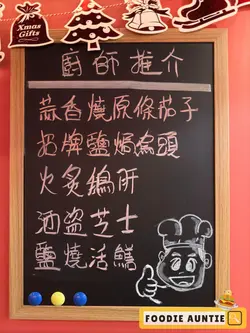 Xmas
Gifts
廚師推介
蒜香燒原條茄子
招牌鹽焗烏頭
火炙鵝肝
酒盗芝士
鹽燒活鱔
FOODIE AUNTIE